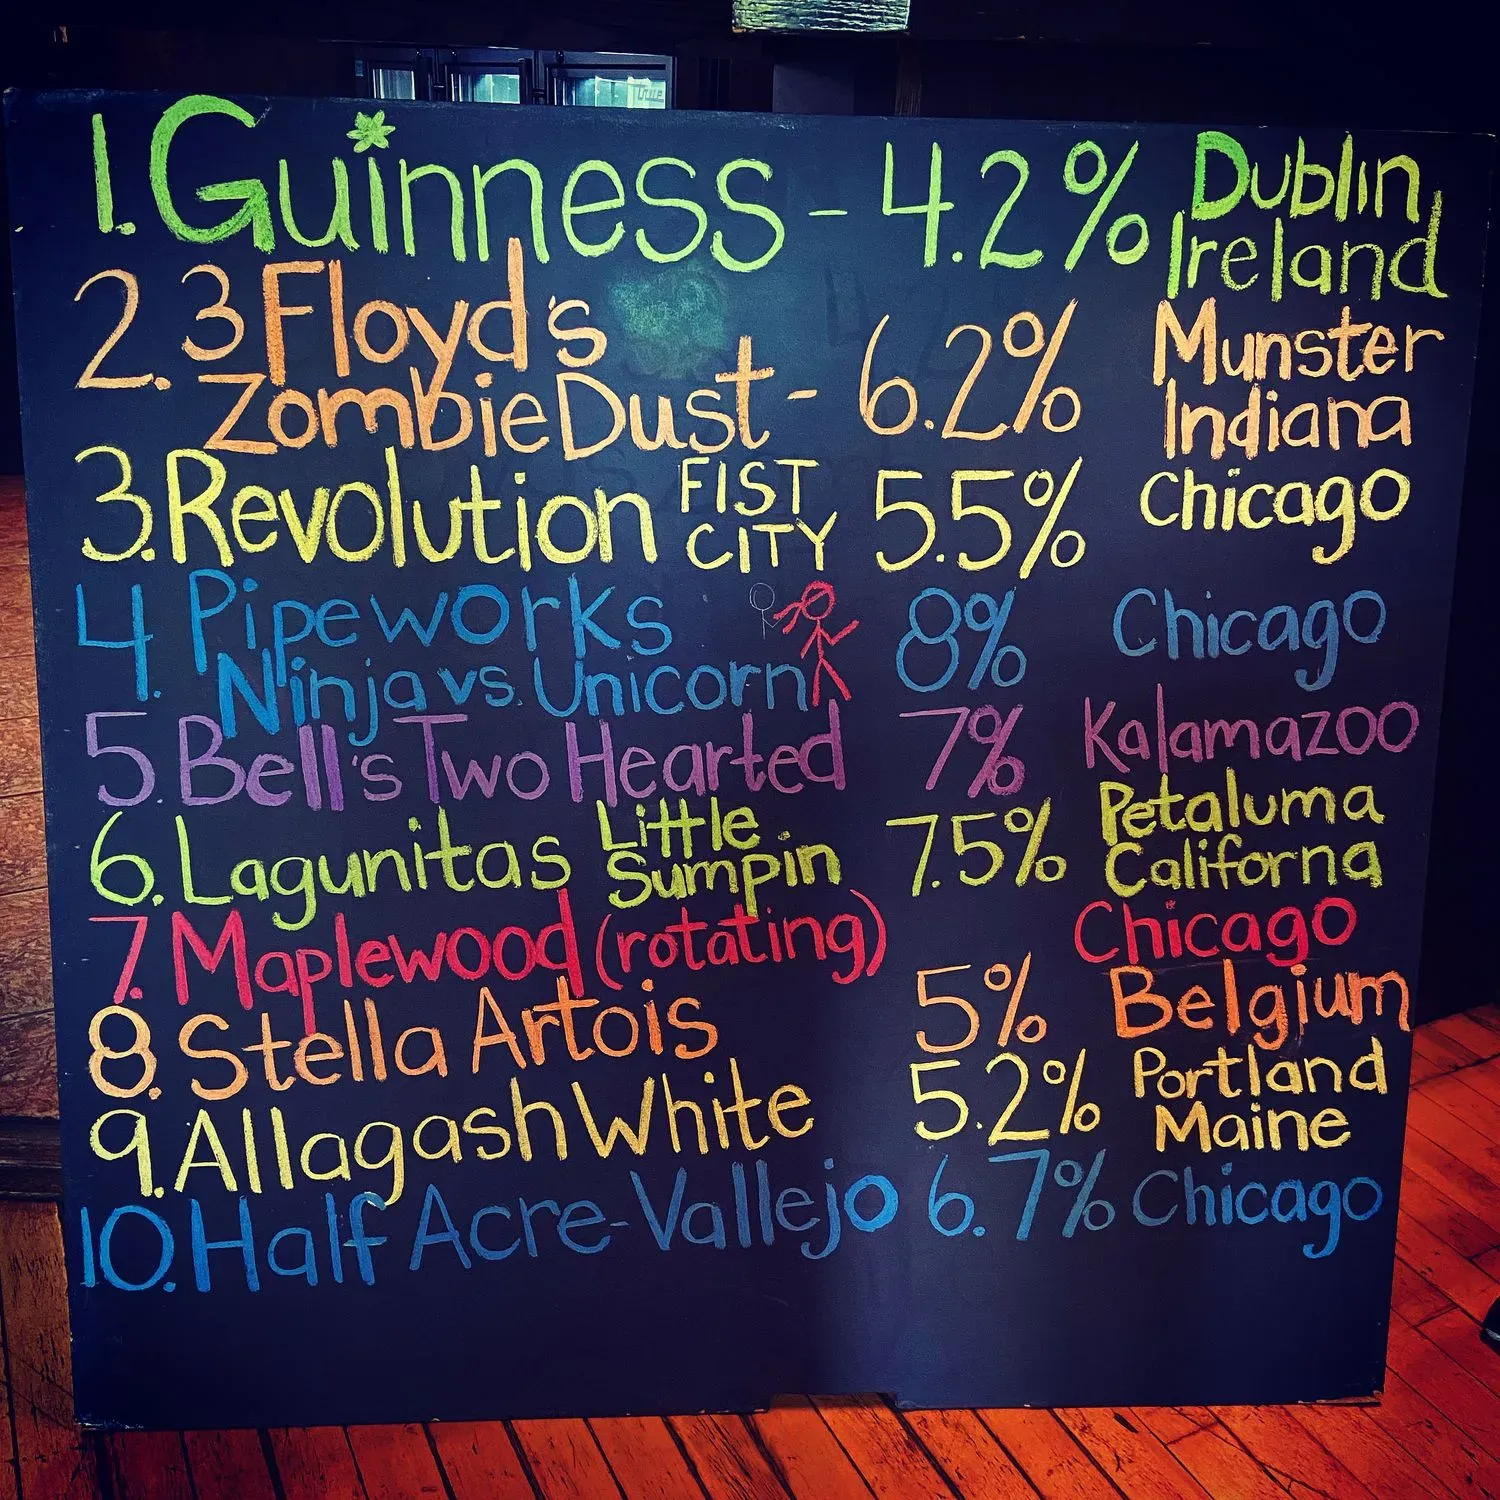 1. Guinness - 4.2% Dublin, Ireland
2. 3 Floyd's Zombie Dust - 6.2% Munster Indiana
3. Revolution FIST CITY 5.5% Chicago
4. Pipeworks Ninja vs. Unicorn 8% Chicago
5. Bell's Two Hearted 7% Kalamazoo
6. Lagunitas Little Sumpin 7.5% Petaluma Californa
7. Maplewood (rotating) Chicago
8. Stella Artois 5% Belgium
9. Allagash White 5.2% Portland Maine
10. Half Acre-Vallejo 6.7% Chicago